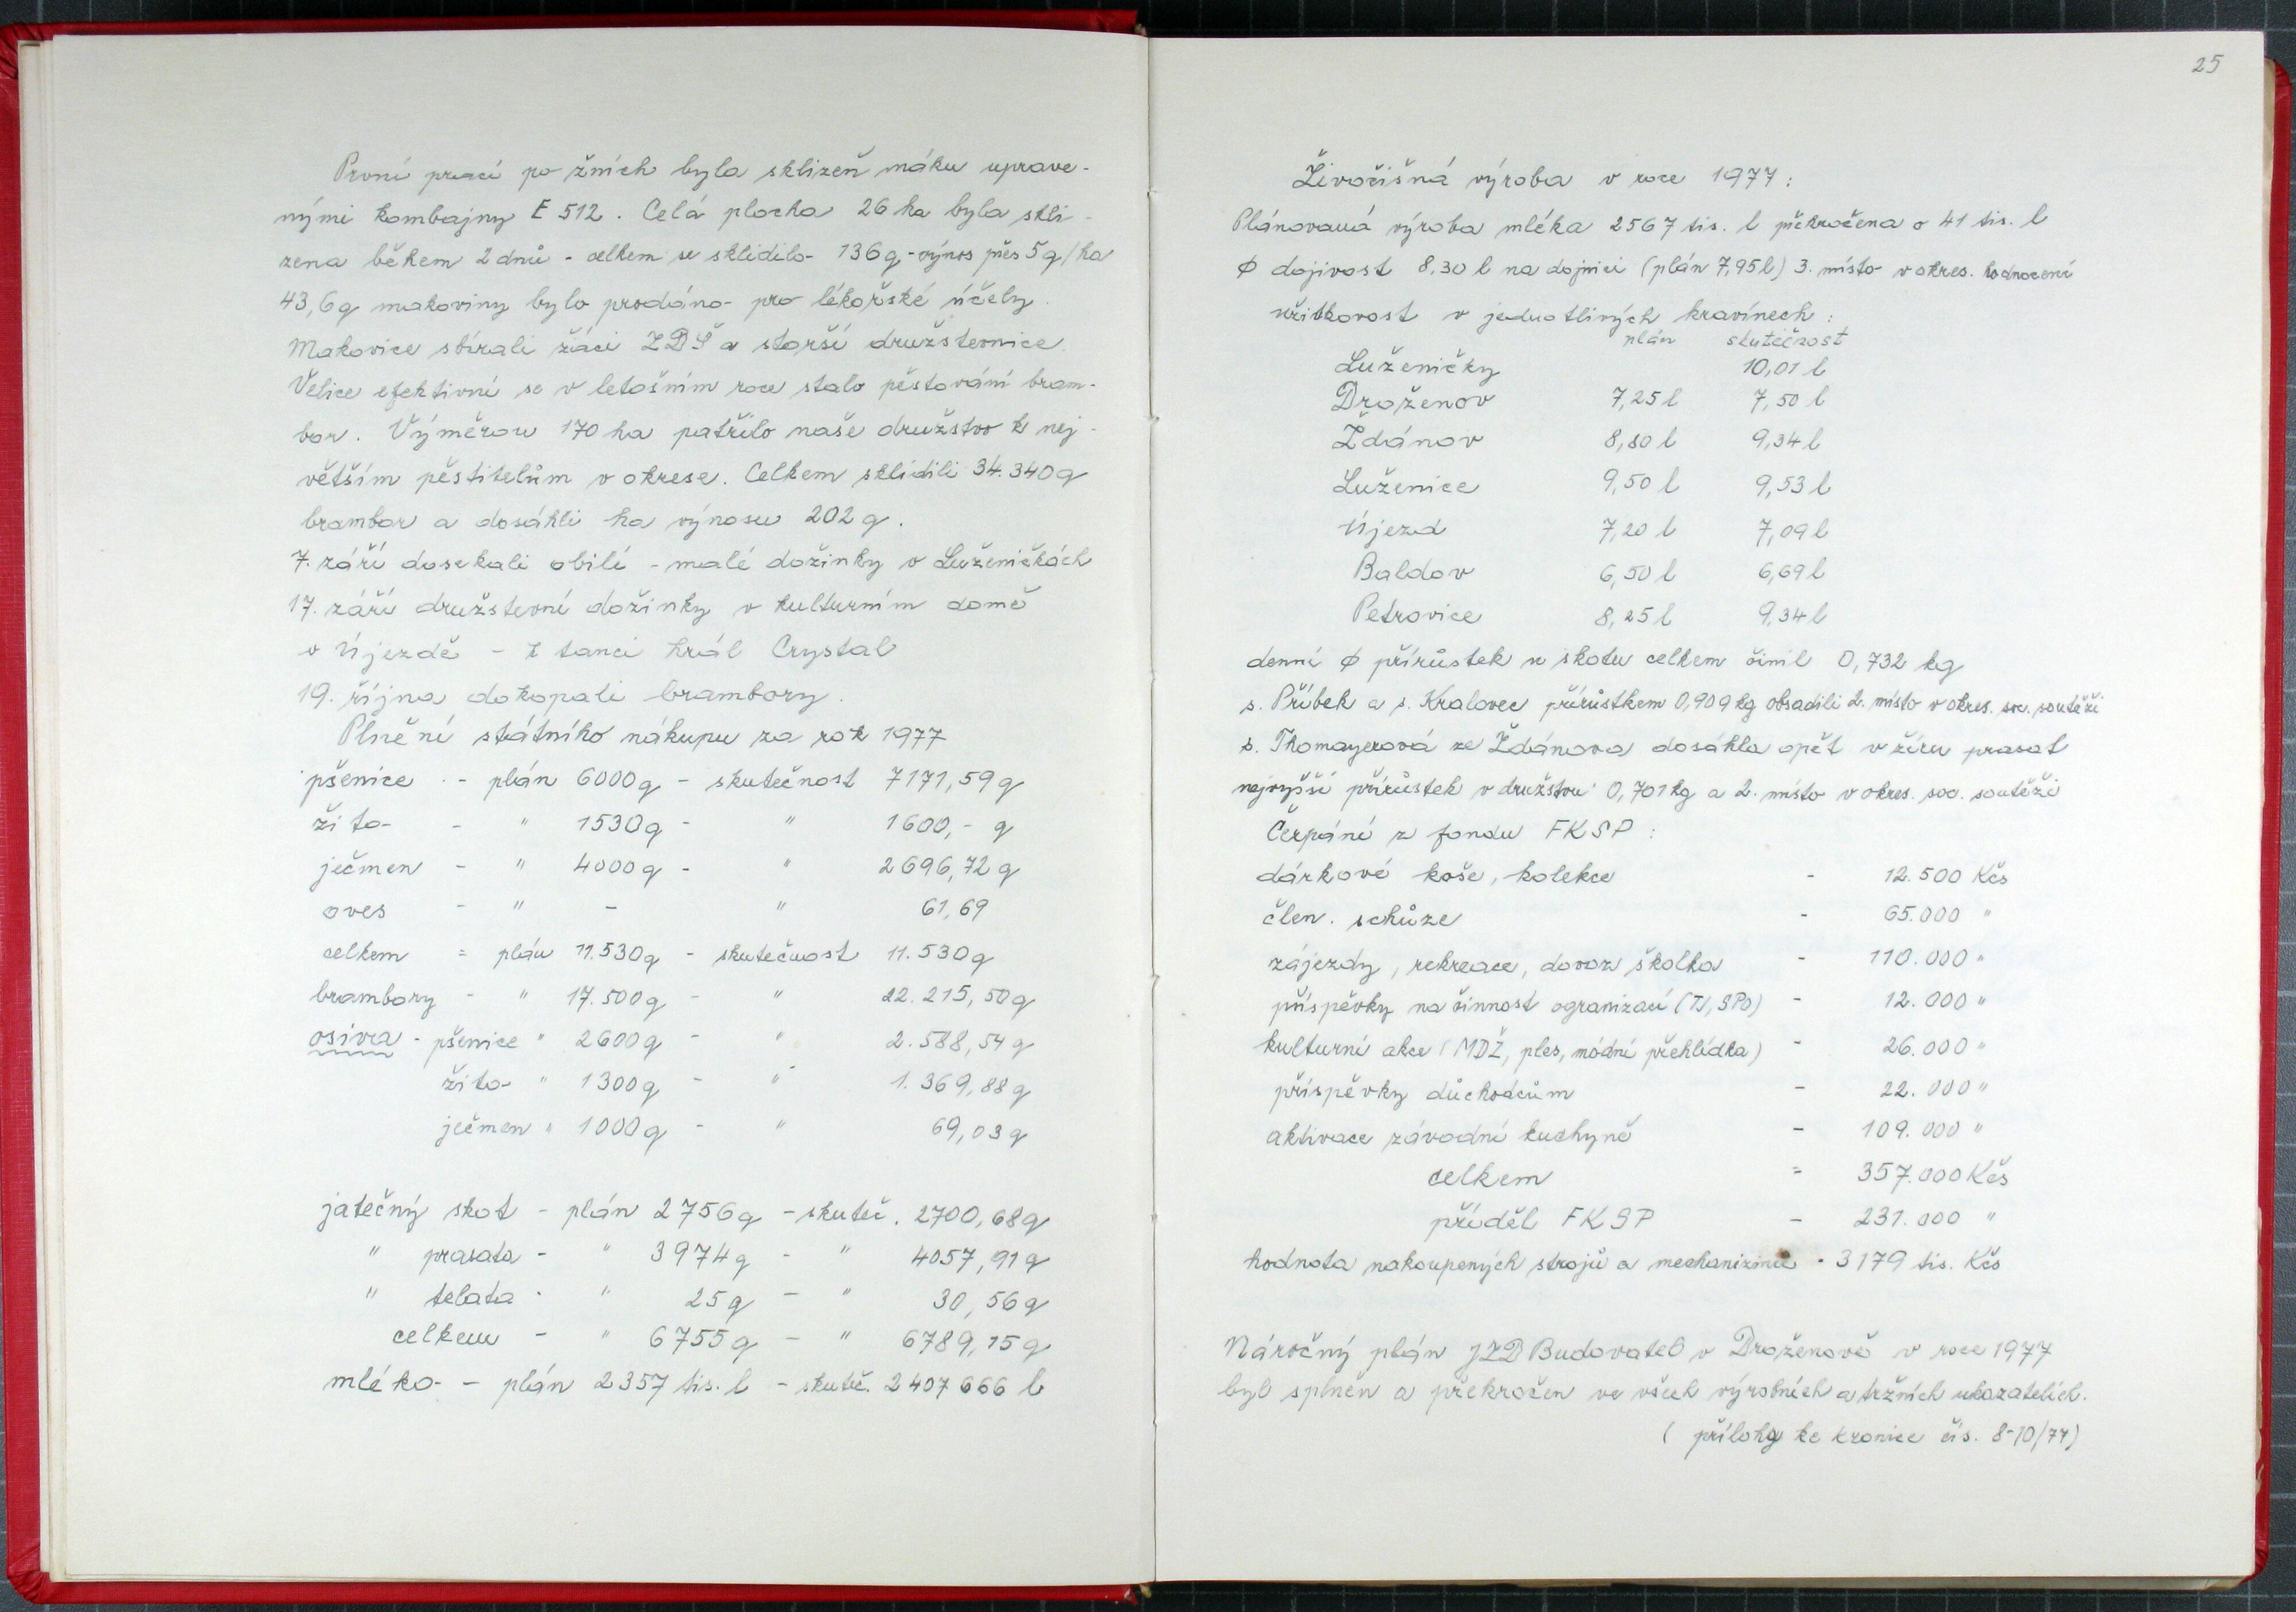 První prací po žních byla sklizeň máku uprave-
nými kombajny E 512. Celá plocha 26 ha byla skli-
zena během 2 dnů - celkem se sklidilo 136 q - výnos přes 5 q/ha
43,6 q makoviny bylo prodáno pro lékařské účely.
Makovice sbírali žáci ZDŠ a starší družstevnice.
Velice efektivní se v letošním roce stalo pěstování bram-
bor. Výměrou 170 ha patřilo naše družstvo k nej-
větším pěstitelům v okrese. Celkem sklidili 34.340 q
brambor a dosáhli ha výnosu 202 q.
7. září dosekali obilí - malé dožínky v Luženičkách
17. září družstevní dožínky v kulturním domě
v Újezdě - k tanci hrál Crystal
19. října dokopali brambory.
Plnění státního nákupu za rok 1977
pšenice - plán 6000 q - skutečnost 7171,59 q
žito - " 1530 q - " 1600,- q
ječmen - " 4000 q - " 2696,72 q
oves - " - " 61,69
celkem = plán 11.530 q - skutečnost 11.530 q
brambory - " 17.500 q - " 22.215,50 q
osiva - pšenice " 2600 q - " 2.588,54 q
žito - " 1300 q - " 1.369,88 q
ječmen " 1000 q - " 69,03 q
jatečný skot - plán 2756 q - skuteč. 2700,68 q
" prasata - " 3974 q - " 4057,91 q
" telata - " 25 q - " 30,56 q
celkem - " 6755 q - " 6789,15 q
mléko - plán 2357 tis. l - skuteč. 2 407 666 l
25
Živočišná výroba v roce 1977:
Plánovaná výroba mléka 2567 tis. l překročena o 41 tis. l
Ø dojivost 8,30 l na dojnici (plán 7,95 l) 3. místo v okres. hodnocení
užitkovost v jednotlivých kravínech:
plán skutečnost
Luženičky 10,01 l
Draženov 7,25 l 7,50 l
Ždánov 8,80 l 9,34 l
Luženice 9,50 l 9,53 l
Újezd 7,20 l 7,09 l
Baldov 6,50 l 6,69 l
Petrovice 8,25 l 9,34 l
denní Ø přírůstek u skotu celkem činil 0,732 kg
s. Příbek a s. Kralovec přírůstkem 0,909 kg obsadili 2. místo v okres. soc. soutěži
s. Thomayerová ze Ždánova dosáhla opět v žíru prasat
nejvyšší přírůstek v družstvu 0,701 kg a 2. místo v okres. soc. soutěži
Čerpání z fondu FKSP:
dárkové koše, kolekce - 12.500 Kčs
člen. schůze - 65.000 "
zájezdy, rekreace, dovoz školka - 110.000 "
příspěvky na činnost ogranizací (TJ, SPO) - 12.000 "
kulturní akce (MDŽ, ples, módní přehlídka) - 26.000 "
příspěvky důchodcům - 22.000 "
aktivace závodní kuchyně - 109.000 "
celkem = 357.000 Kčs
příděl FKSP - 231.000 "
hodnota nakoupených strojů a mechanizmů - 3179 tis. Kčs
Náročný plán JZD Budovatel v Draženově v roce 1977
byl splněn a překročen ve všech výrobních a tržních ukazatelích.
(přílohy ke kronice čís. 8-10/77)